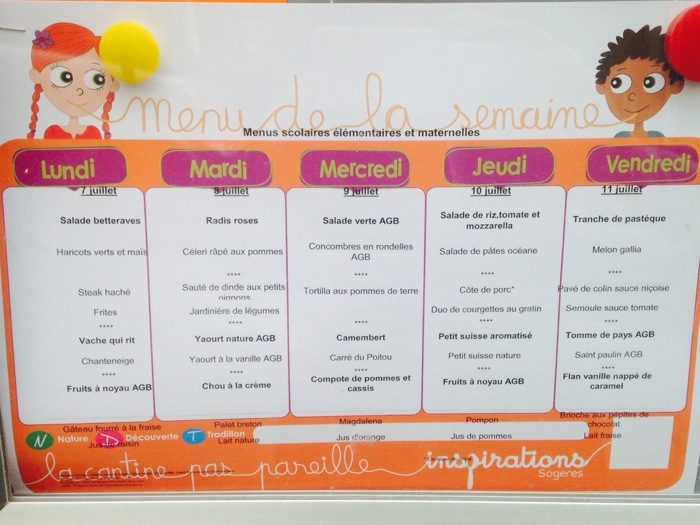 menu de la semaine
Menus scolaires élémentaires et maternelles
Lundi
7 juillet
Salade betteraves
Haricots verts et maïs
****
Steak haché
Frites
****
Vache qui rit
Chanteneige
****
Fruits à noyau AGB
Gâteau fourré à la fraise
Jus de raisin
Mardi
8 juillet
Radis roses
Céleri râpé aux pommes
****
Sauté de dinde aux petits
oignons
Jardinière de légumes
****
Yaourt nature AGB
Yaourt à la vanille AGB
****
Chou à la crème
Palet breton
Lait nature
Mercredi
9 juillet
Salade verte AGB
Concombres en rondelles
AGB
****
Tortilla aux pommes de terre
****
Camembert
Carré du Poitou
****
Compote de pommes et
cassis
Magdalena
Jus d'orange
Jeudi
10 juillet
Salade de riz,tomate et
mozzarella
Salade de pâtes océane
****
Côte de porc*
Duo de courgettes au gratin
****
Petit suisse aromatisé
Petit suisse nature
****
Fruits à noyau AGB
Pompon
Jus de pommes
Vendredi
11 juillet
Tranche de pastèque
Melon gallia
****
Pavé de colin sauce niçoise
Semoule sauce tomate
****
Tomme de pays AGB
Saint paulin AGB
****
Flan vanille nappé de
caramel
Brioche aux pépites de
chocolat
Lait fraise
N Nature D Découverte T Tradition
la cantine pas pareille inspirations
Sogeres